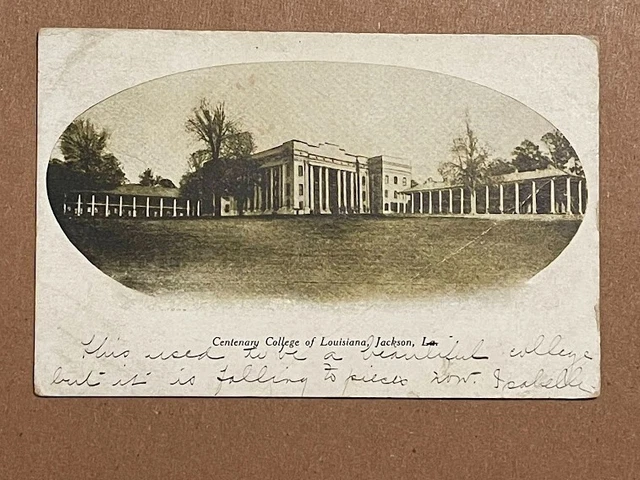 Centenary College of Louisiana, Jackson, La.
This used to be a beautiful college
but it is falling to pieces now. Isabelle